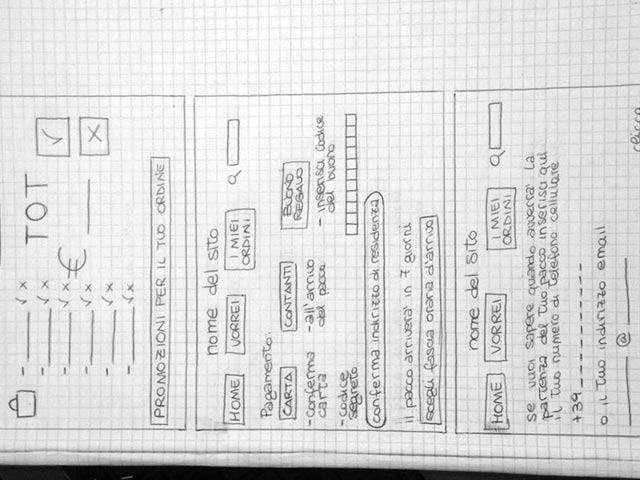 TOT
€
PROMOZIONI PER IL TUO ORDINE
nome del sito
HOME VORREI I MIEI ORDINI
Pagamento:
CARTA CONTANTI BUONO REGALO
- Conferma carta
- codice segreto
- all'arrivo del pacco
- inserisci codice del buono
conferma indirizzo di residenza
il pacco arriverà in 7 giorni
scegli fascia oraria d'arrivo
nome del sito
HOME VORREI I MIEI ORDINI
se vuoi sapere quando avverrà la
partenza del tuo pacco inserisci qui
il tuo numero di telefono cellulare
+39
o il tuo indirizzo email
@
clicca